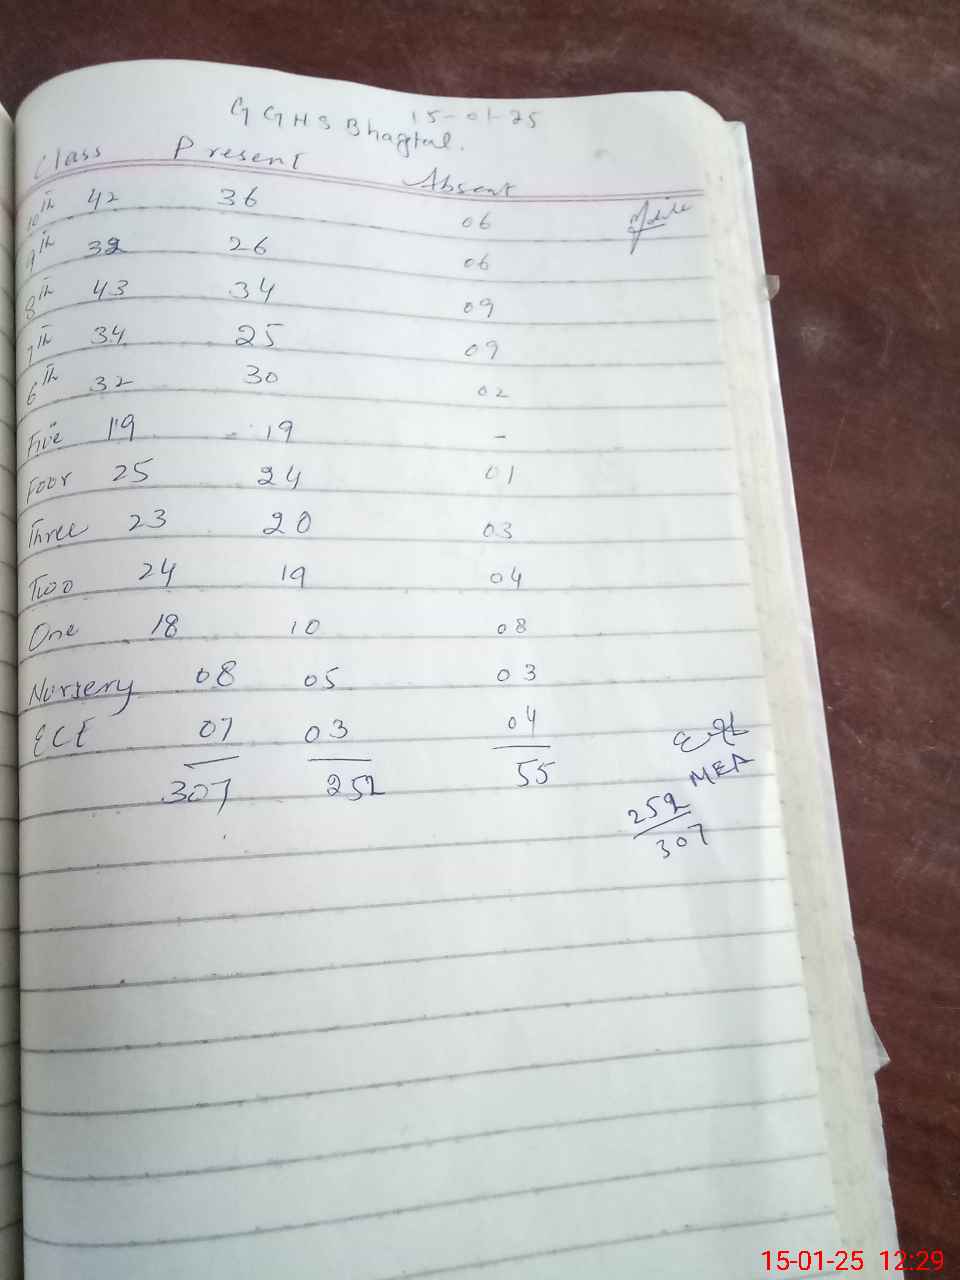 15-01-25
GGHS Bhagtal.
Class Present Absent
10th 42 36 06
9th 32 26 06
8th 43 34 09
7th 34 25 09
6th 32 30 02
Five 19 19 -
Four 25 24 01
Three 23 20 03
Two 24 19 04
One 18 10 08
Nursery 08 05 03
ECE 07 03 04
307 252 55
MEA
252
307
15-01-25 12:29